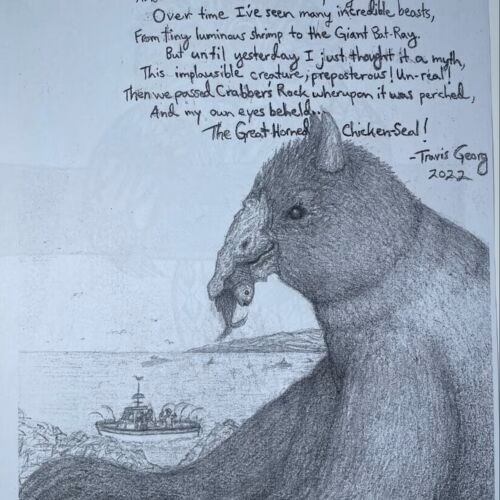 Over time I've seen many incredible beasts,
From tiny luminous shrimp to the Giant Bat-Ray.
But until yesterday I just thought it a myth,
This implausible creature; preposterous! Un-real!
Then we passed Crabbers Rock wherupon it was perched,
And my own eyes beheld...
The Great Horned Chicken-Seal!
-Travis Georg
2022